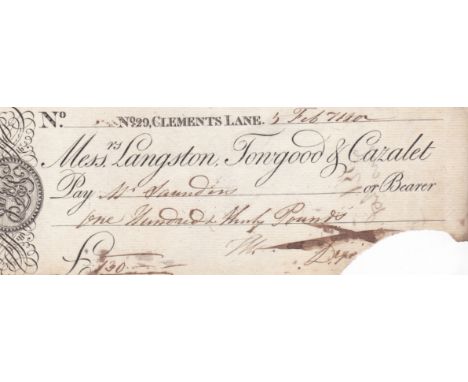 No. No. 29, CLEMENTS LANE. 5 Feb
Messrs. Langston, Towgood & Cazalet
Pay Mr Saunders or Bearer
One Hundred & Thirty Pounds
£130